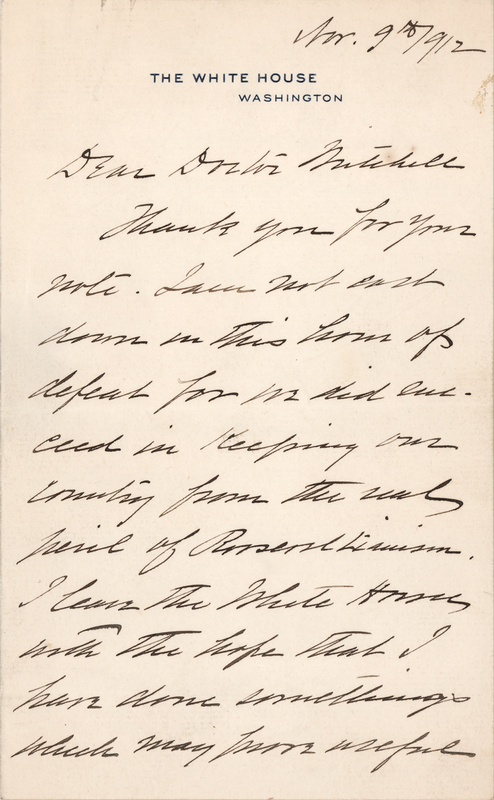 Nov. 9th/912
THE WHITE HOUSE
WASHINGTON
Dear Doctor Mitchell
Thank you for your
note. I am not cast
down in this hour of
defeat for we did suc-
ceed in keeping our
country from the real
peril of Rooseveltianism.
I leave the White House
with the hope that I
have done somethings
which may prove useful